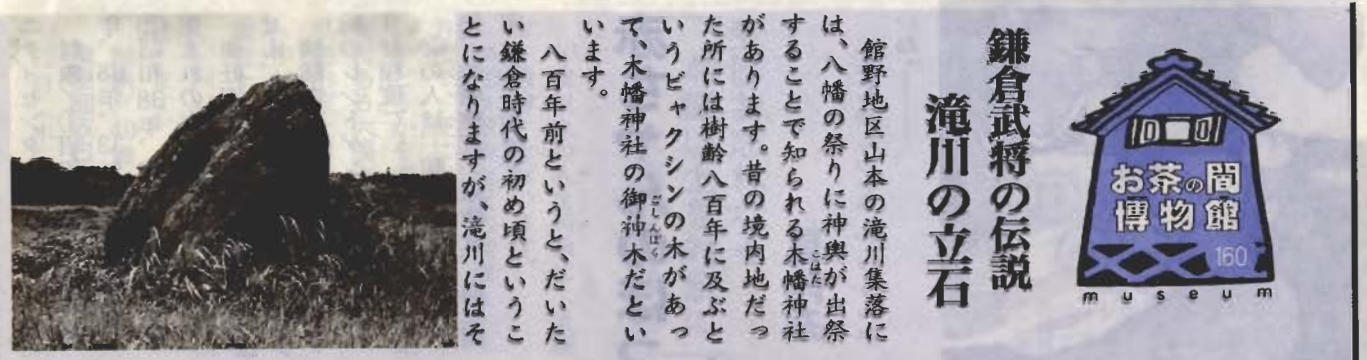 お茶の間
博物館
160
museum
鎌倉武将の伝説
滝川の立石
館野地区山本の滝川集落に
は、八幡の祭りに神輿が出祭
することで知られる木幡神社
こはた
があります。昔の境内地だっ
た所には樹齢八百年に及ぶと
いうビャクシンの木があっ
て、木幡神社の御神木だとい
ごしんぼく
います。
八百年前というと、だいた
い鎌倉時代の初め頃というこ
とになりますが、滝川にはそ